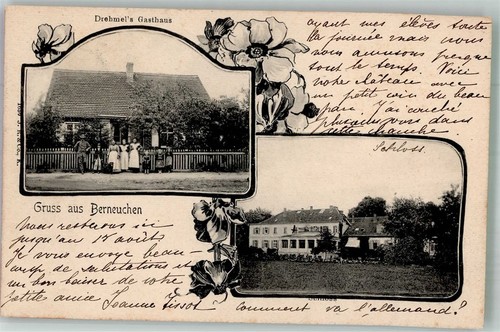 Drehmel's Gasthaus
ayant mes élèves toute
la journée mais nous
nous amusons presque
tout le temps. Voici
notre château avec
un petit vin du beau
parc. J'ai couché
plusieurs fois dans
cette chambre
Schloss.
Gruss aus Berneuchen
Nous resterons ici
jusqu'au 18 août
Je vous envoie beau
coup de salutations et
un bon baiser de votre
petite amie Jeanne Tissot
Schloss
comment va l'allemand?